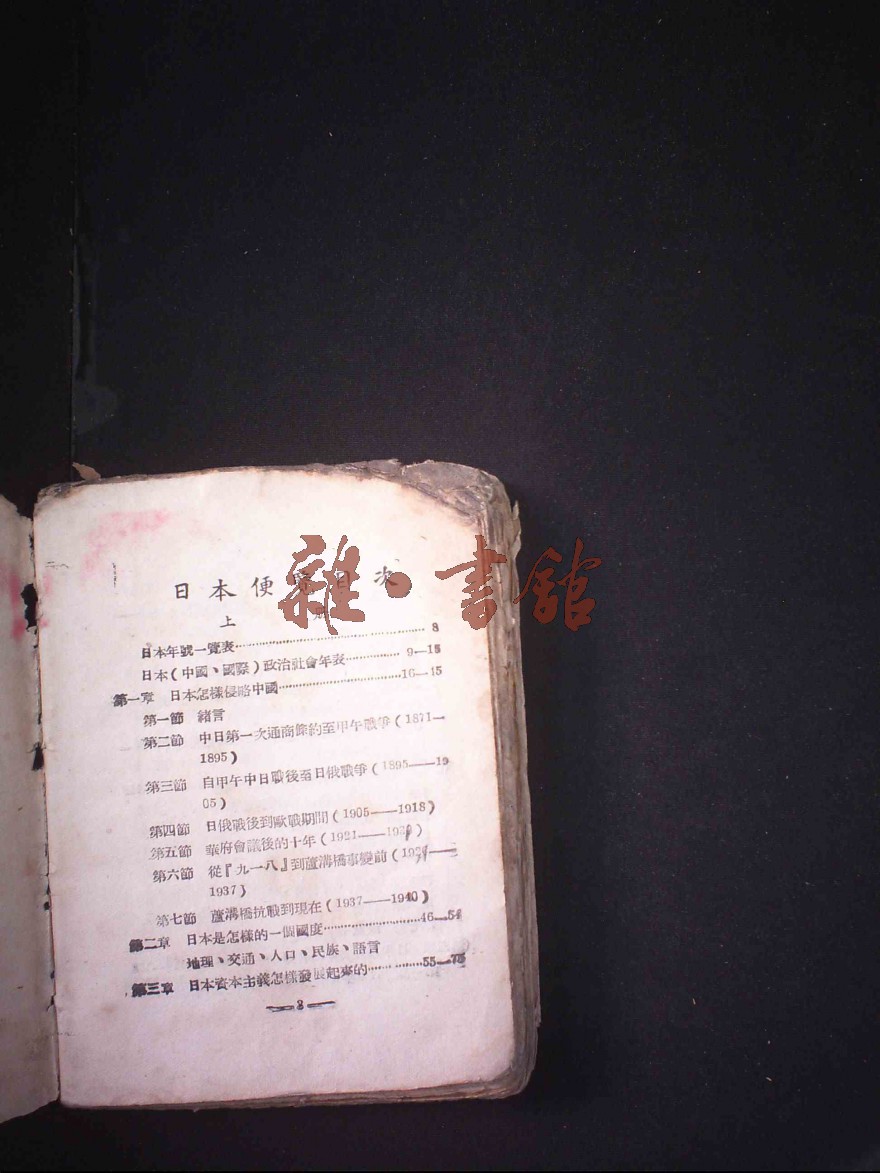 日本便覽目次
上 冊
日本年號一覽表 8
日本(中國、國際)政治社會年表 9—15
第一章 日本怎樣侵略中國 16—15
第一節 緒言
第二節 中日第一次通商條約至甲午戰爭(1871—
1895)
第三節 自甲午中日戰後至日俄戰爭(1895——19
05)
第四節 日俄戰後到歐戰期間(1905——1918)
第五節 華府會議後的十年(1921——
第六節 從『九一八』到蘆溝橋事變前(
1937)
第七節 蘆溝橋抗戰到現在(1937——1940)
第二章 日本是怎樣的一個國度 46—54
地理、交通、人口、民族、語言
第三章 日本資本主義怎樣發展起來的 55—75
雜·書館